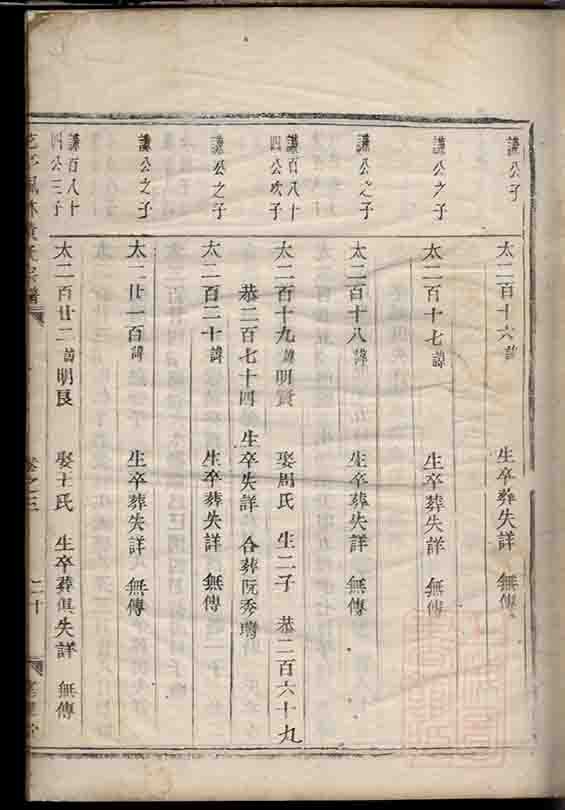 謙公子
太二百十六諱 生卒葬失詳 無傳
謙公之子
太二百十七諱 生卒葬失詳 無傳
謙公之子
太二百十八諱 生卒葬失詳 無傳
謙百八十
四公次子
太二百十九諱明賢 娶周氏 生二子 恭二百六十九
恭二百七十四 生卒失詳 合葬阮秀塢
謙公之子
太二百二十諱 生卒葬失詳 無傳
謙公之子
太二廿一百諱 生卒葬失詳 無傳
謙百八十
四公三子
太二百廿二諱明良 娶王氏 生卒葬俱失詳 無傳
宗譜 卷之三 二十